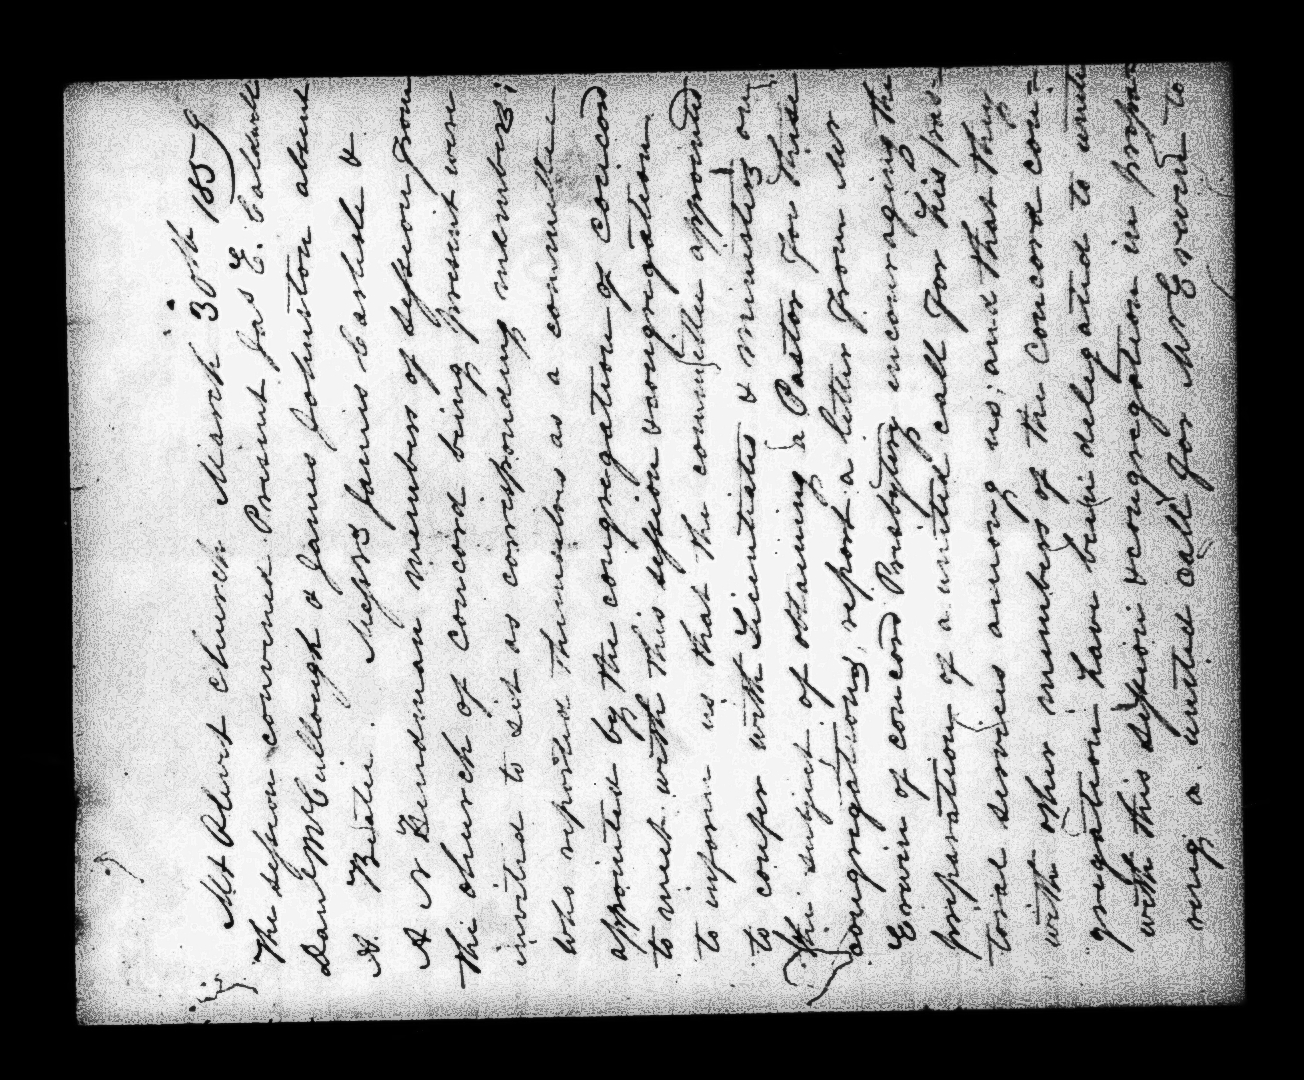 Mt Olivet church March 30th 1859
The session convened Present Jas E. Caldwell
Danl McCullough & James Johnston absent
A. Beatie. Messrs James Carlisle &
A N Hindman members of session from
the church of Concord being present were
invited to sit as corresponding members;
who reported themselves as a committee
appointed by the congregation of Concord
to meet with this session & congregation
to inform us that the committee appointed
to confer with Licentiates & ministers on
the subject of obtaining a Pastor for these
congregations, report a letter from Mr
Erwin of Concord Presbytery encouraging the
preparation of a united call for his pas-
toral services among us; and that they
with other members of the Concord con-
gregation have been delegated to unite
with this session & congregation in prepa-
ring a united call for Mr Erwin to